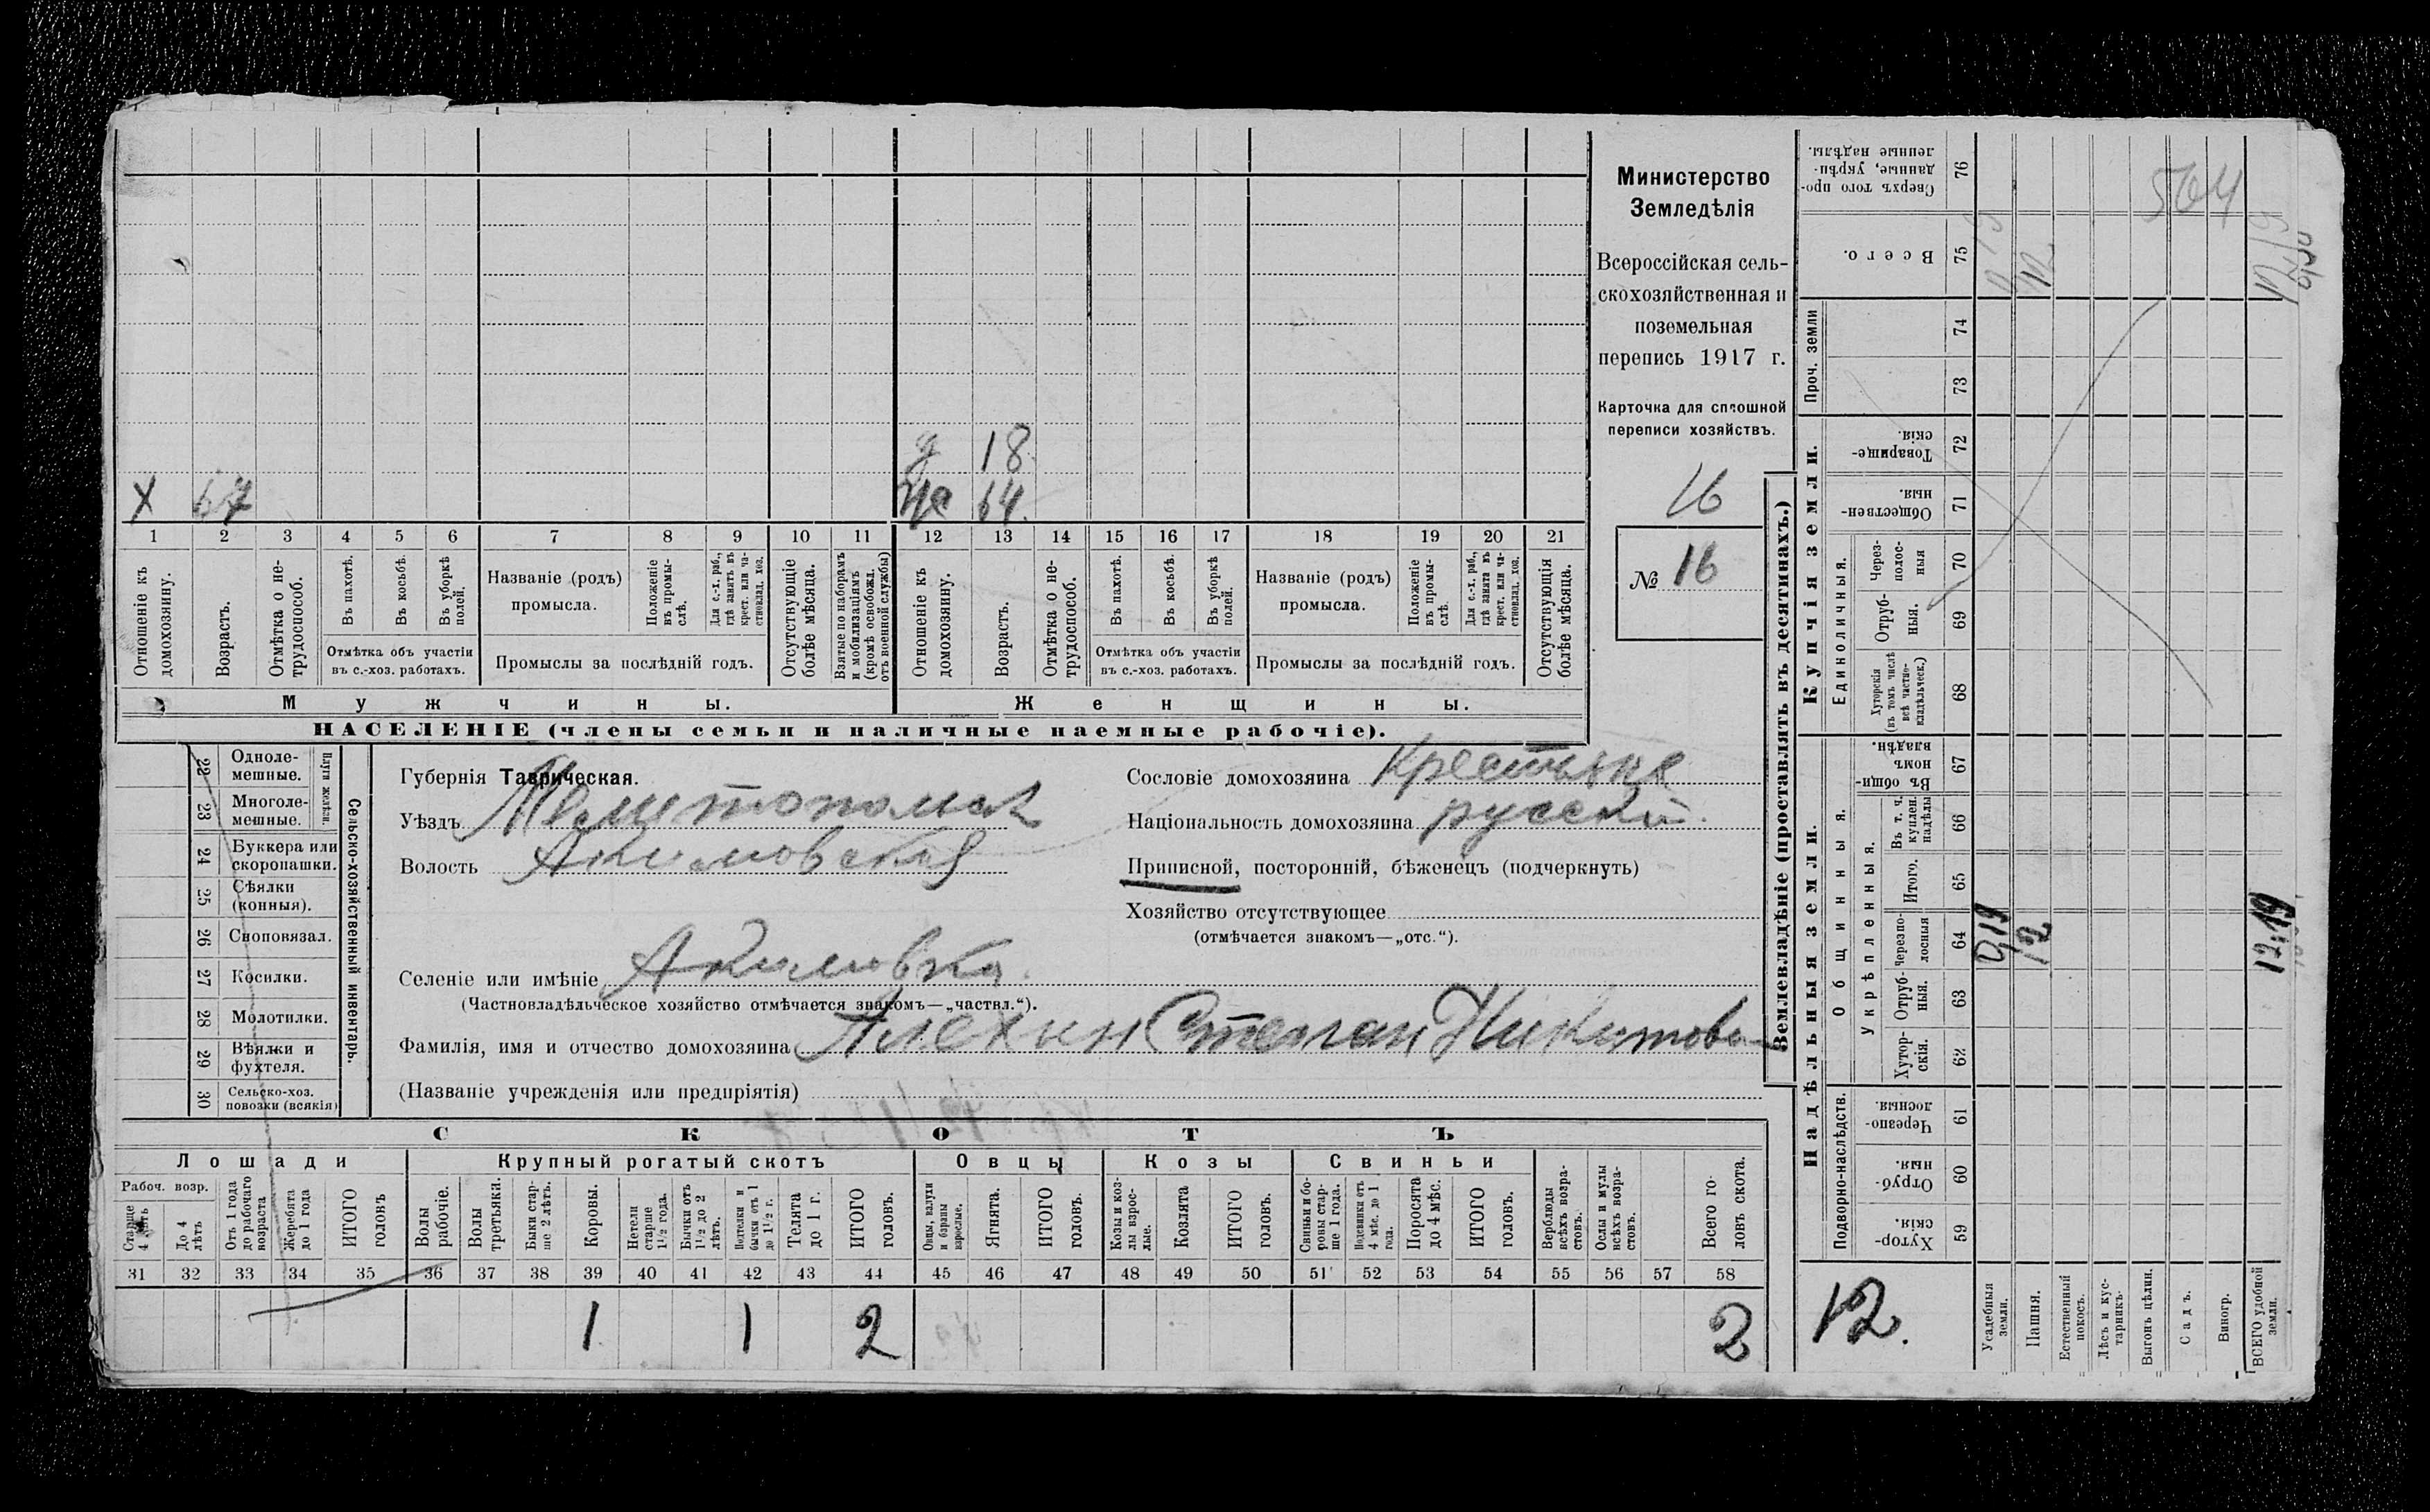 Министерство
Земледѣлія
Всероссійская сель-
скохозяйственная и
поземельная
перепись 1917 г.
Карточка для сплошной
переписи хозяйствъ.
16
№ 16
д 18
Х 67
же 64.
1 2 3 4 5 6 7 8 9 10 11 12 13 14 15 16 17 18 19 20 21
Отношеніе къ домохозяину.
Возрастъ.
Отмѣтка о не-трудоспособ.
Въ пахотѣ.
Въ косьбѣ.
Въ уборкѣ полей.
Отмѣтка объ участіи
въ с.-хоз. работахъ.
Названіе (родъ)
промысла.
Положеніе въ промы-слѣ.
Для с.-х. раб., гдѣ занятъ въ крест. или ча-стновлад. хоз.
Промыслы за послѣдній годъ.
Отсутствующіе болѣе мѣсяца.
Взятые по наборамъ и мобилизаціямъ (кромѣ освобожд. отъ военной службы)
Отношеніе къ домохозяину.
Возрастъ.
Отмѣтка о не-трудоспособ.
Въ пахотѣ.
Въ косьбѣ.
Въ уборкѣ полей.
Отмѣтка объ участіи
въ с.-хоз. работахъ.
Названіе (родъ)
промысла.
Положеніе въ промы-слѣ.
Для с.-х. раб., гдѣ занята въ крест. или ча-стновлад. хоз.
Промыслы за послѣдній годъ.
Отсутствующія болѣе мѣсяца.
Мужчины.
Женщины.
НАСЕЛЕНІЕ (члены семьи и наличные наемные рабочіе).
Сельско-хозяйственный инвентарь.
Плуги желѣзн.
22 Одноле-мешные.
23 Многоле-мешные.
24 Буккера или скоропашки.
25 Сѣялки (конныя).
26 Сноповязал.
27 Косилки.
28 Молотилки.
29 Вѣялки и фухтеля.
30 Сельско-хоз. повозки (всякія)
Губернія Таврическая.
Уѣздъ Мелитопольск
Волость Акимовская
Селеніе или имѣніе Акимовка.
(Частновладѣльческое хозяйство отмѣчается знакомъ—„частвл.“).
Фамилія, имя и отчество домохозяина Алехин Степан Никитов
(Названіе учрежденія или предпріятія)
Сословіе домохозяина Крестьяне
Національность домохозяина русский.
Приписной, посторонній, бѣженецъ (подчеркнуть)
Хозяйство отсутствующее
(отмѣчается знакомъ—„отс.“).
СКОТЪ
Лошади
Крупный рогатый скотъ
Овцы
Козы
Свиньи
Рабоч. возр.
Старше 4 лѣтъ
До 4 лѣтъ
Отъ 1 года до рабочаго возраста
Жеребята до 1 года
ИТОГО головъ
Волы рабочіе.
Волы третьяки.
Быки стар-ше 2 лѣтъ.
Коровы.
Нетели старше 1½ года.
Бычки отъ 1½ до 2 лѣтъ.
Подтелки и бычки отъ 1 до 1½ г.
Телята до 1 г.
ИТОГО головъ.
Овцы, валухи и бараны взрослые.
Ягнята.
ИТОГО головъ.
Козы и коз-лы взрос-лые.
Козлята
ИТОГО головъ.
Свиньи и бо-ровы стар-ше 1 года.
Подсвинки отъ 4 мѣс. до 1 года.
Поросята до 4 мѣс.
ИТОГО головъ.
Верблюды всѣхъ возра-стовъ.
Ослы и мулы всѣхъ возра-стовъ.
Всего го-ловъ скота.
31 32 33 34 35 36 37 38 39 40 41 42 43 44 45 46 47 48 49 50 51 52 53 54 55 56 57 58
1 1 2 2
Землевладѣніе (проставлять въ десятинахъ.)
Купчія земли.
Надѣльныя земли.
76 Сверхъ того про-данные, укрѣп-ленные надѣлы.
75 Всего.
Проч. земли
74
73
72 Товарище-скія.
71 Обществен-ныя.
Единоличныя.
70 Через-полос-ныя
69 Отруб-ныя.
68 Хуторскія (въ томъ числѣ всѣ частно-владѣльческ.)
Общинныя.
67 Въ общин-номъ владѣн.
Укрѣпленныя.
66 Въ т. ч. куплен. надѣлы
65 Итого.
64 Черезпо-лосныя
63 Отруб-ныя.
62 Хутор-скія.
Подворно-наслѣдств.
61 Черезпо-лосныя.
60 Отруб-ныя.
59 Хутор-скія.
Усадебныя земли.
Пашня.
Естественный покосъ.
Лѣсъ и кус-тарникъ.
Выгонъ цѣлин.
Садъ.
Виногр.
ВСЕГО удобной земли.
504
12
0,19
12
12,19
12.